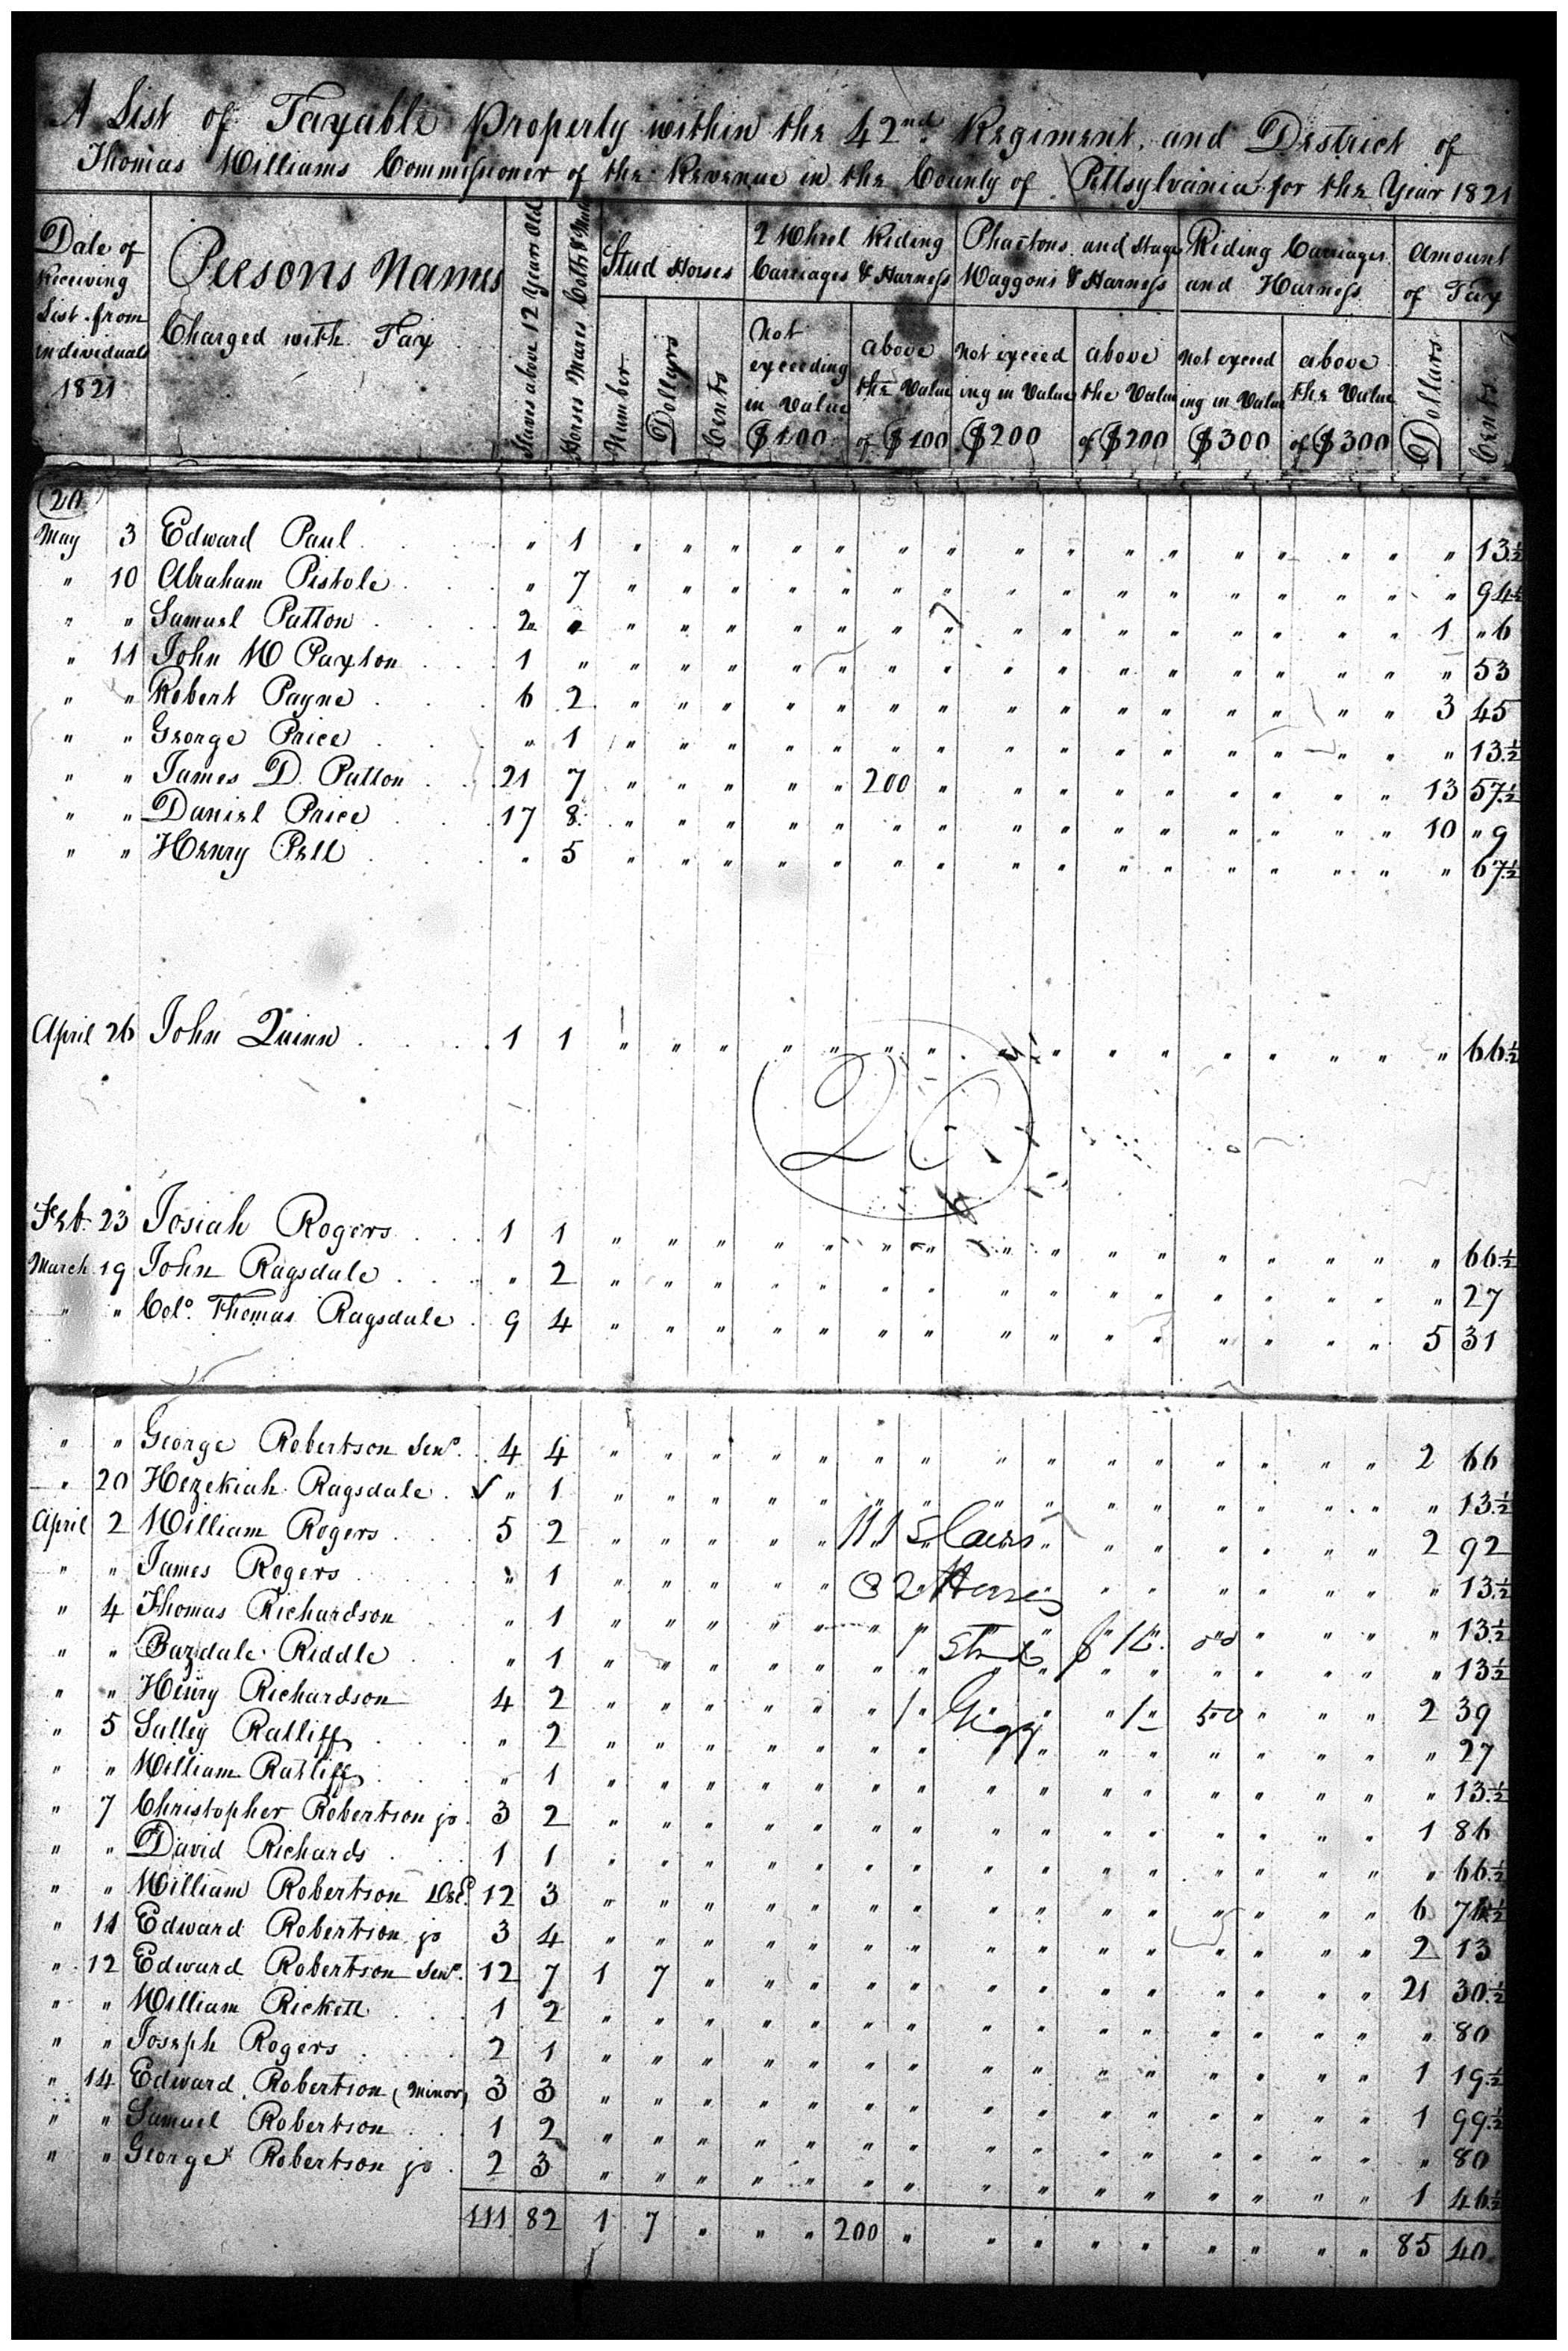 A List of Taxable Property within the 42nd Regiment, and District of
Thomas Williams Commissioner of the Revenue in the County of Pittsylvania for the Year 1821
Date of Receiving List from individuals 1821
Persons Names Charged with Tax
Slaves above 12 Years Old
Horses Mares Colts & Mules
Stud Horses
Number Dollars Cents
2 Wheel Riding Carriages & Harness
Not exceeding in Value $100
above the Value of $100
Phaetons and Stage Waggons & Harness
Not exceeding in Value $200
above the Value of $200
Riding Carriages and Harness
Not exceeding in Value $300
above the Value of $300
Amount of Tax
Dollars Cents
20
May 3 Edward Paul " 1 " 13½
" 10 Abraham Pistole " 7 " 94½
" " Samuel Patton 2 " 1 "6
" 11 John W Paxton 1 " " 53
" " Robert Payne 6 2 3 45
" " George Price " 1 " 13½
" " James D. Patton 21 7 200 13 57½
" " Daniel Price 17 8 10 "9
" " Henry Pell " 5 " 67½
April 26 John Quinn 1 1 " 66½
20
Feb. 23 Josiah Rogers 1 1 " 66½
March 19 John Ragsdale " 2 " 27
" " Colo. Thomas Ragsdale 9 4 5 31
" " George Robertson Senr. 4 4 2 66
" 20 Hezekiah Ragsdale " 1 " 13½
April 2 William Rogers 5 2 2 92
" " James Rogers " 1 " 13½
" 4 Thomas Richardson " 1 " 13½
" " Buzdale Riddle " 1 " 13½
" " Henry Richardson 4 2 2 39
" 5 Salley Ratliff " 2 " 27
" " William Ratliff " 1 " 13½
" 7 Christopher Robertson jr 3 2 1 86
" " David Richards 1 1 " 66½
" " William Robertson 12 3 6 76½
" 11 Edward Robertson jr 3 4 2 13
" 12 Edward Robertson Senr. 12 7 1 7 21 30½
" " William Rickett 1 2 " 80
" " Joseph Rogers 2 1 1 19½
" 14 Edward Robertson (Minor) 3 3 1 99½
" " Samuel Robertson 1 2 " 80
" " George Robertson jr 2 3 1 46½
111 82 1 7 " " " 200 " 85 40